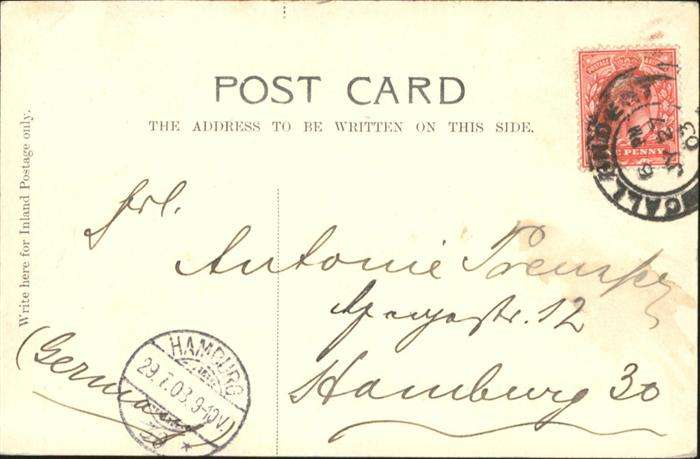 POST CARD
THE ADDRESS TO BE WRITTEN ON THIS SIDE.
Write here for Inland Postage only.
POSTAGE
E PENNY
CALL
JY 27
03
Frl.
Antonie
str. 12
Hamburg 30
(Germany)
HAMBURG
29.7.03.9-10V.